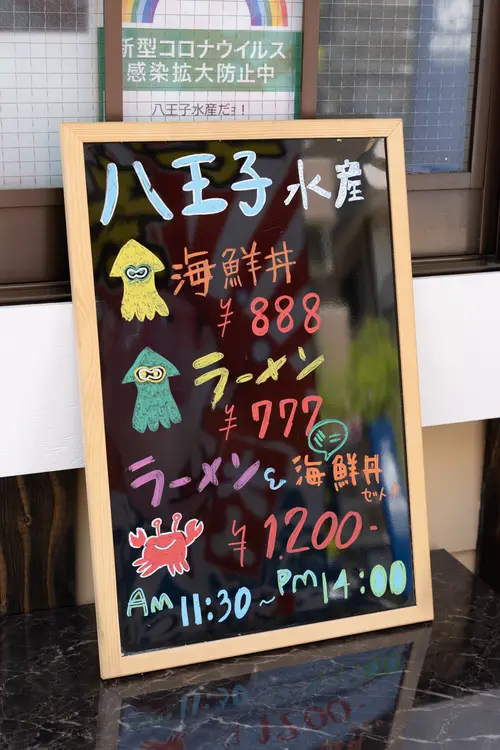 新型コロナウイルス
感染拡大防止中
八王子水産だョ!
八王子水産
海鮮丼
¥888
ラーメン
¥777
ラーメン&海鮮丼
セット
¥1,200-
Am 11:30~Pm 14:00